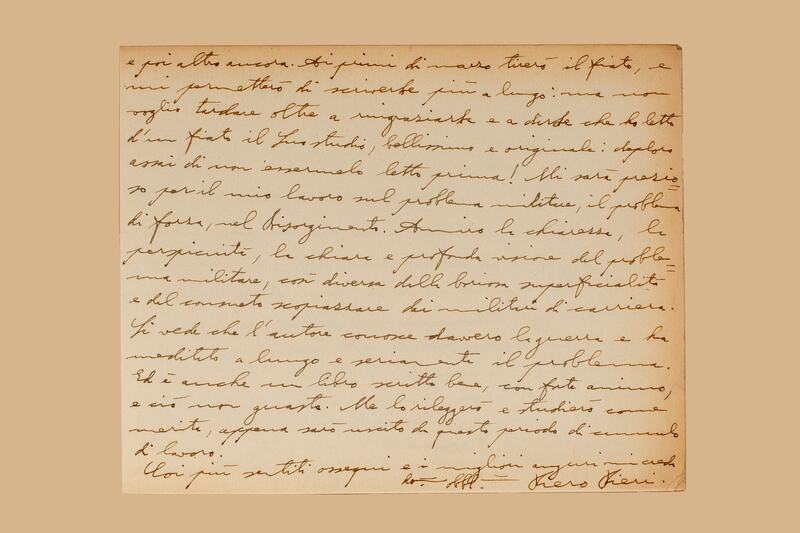 e poi altro ancora. Ai primi di marzo tirerò il fiato, e
mi permetterò di scriverLe più a lungo: ma non
voglio tardare oltre a ringraziarLe e a dirLe che ho letto
d'un fiato il Suo studio, bellissimo e originale: deploro
assai di non essermelo letto prima! Mi sarà prezio=
so per il mio lavoro sul problema militare, il problema
di forza, nel Risorgimento. Ammiro la chiarezza, la
perspicuità, la chiara e profonda visione del proble=
ma militare, così diversa dalla boriosa superficialità
e dal consueto scopiazzare dei militari di carriera.
Si vede che l'autore conosce davvero la guerra e ha
meditato a lungo e seriamente il problema.
Ed è anche un libro scritto bene, con forte animo,
e ciò non guasta. Me lo rileggerò e studierò come
merita, appena sarò uscito da questo periodo di cumulo
di lavoro.
Coi più sentiti ossequi e i migliori auguri mi creda
obbl. Piero Pieri.